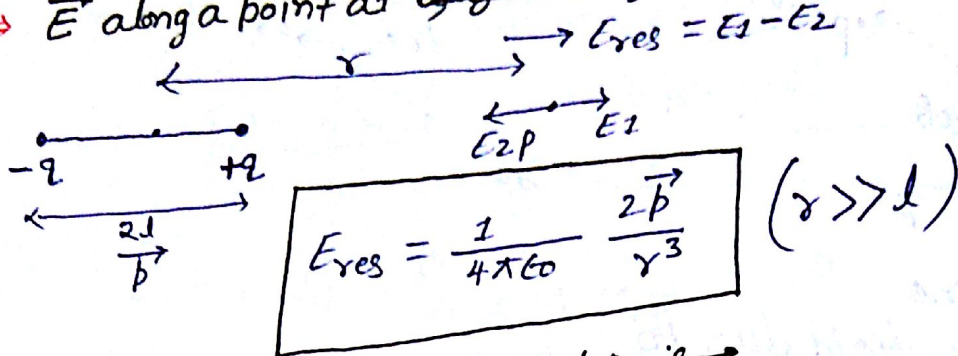 E⃗ along a point at
→ Eres = E1 - E2
r
E2 P E1
-q +q
2l
p⃗
Eres = 1/4πε0 2p⃗/r³ (r>>l)